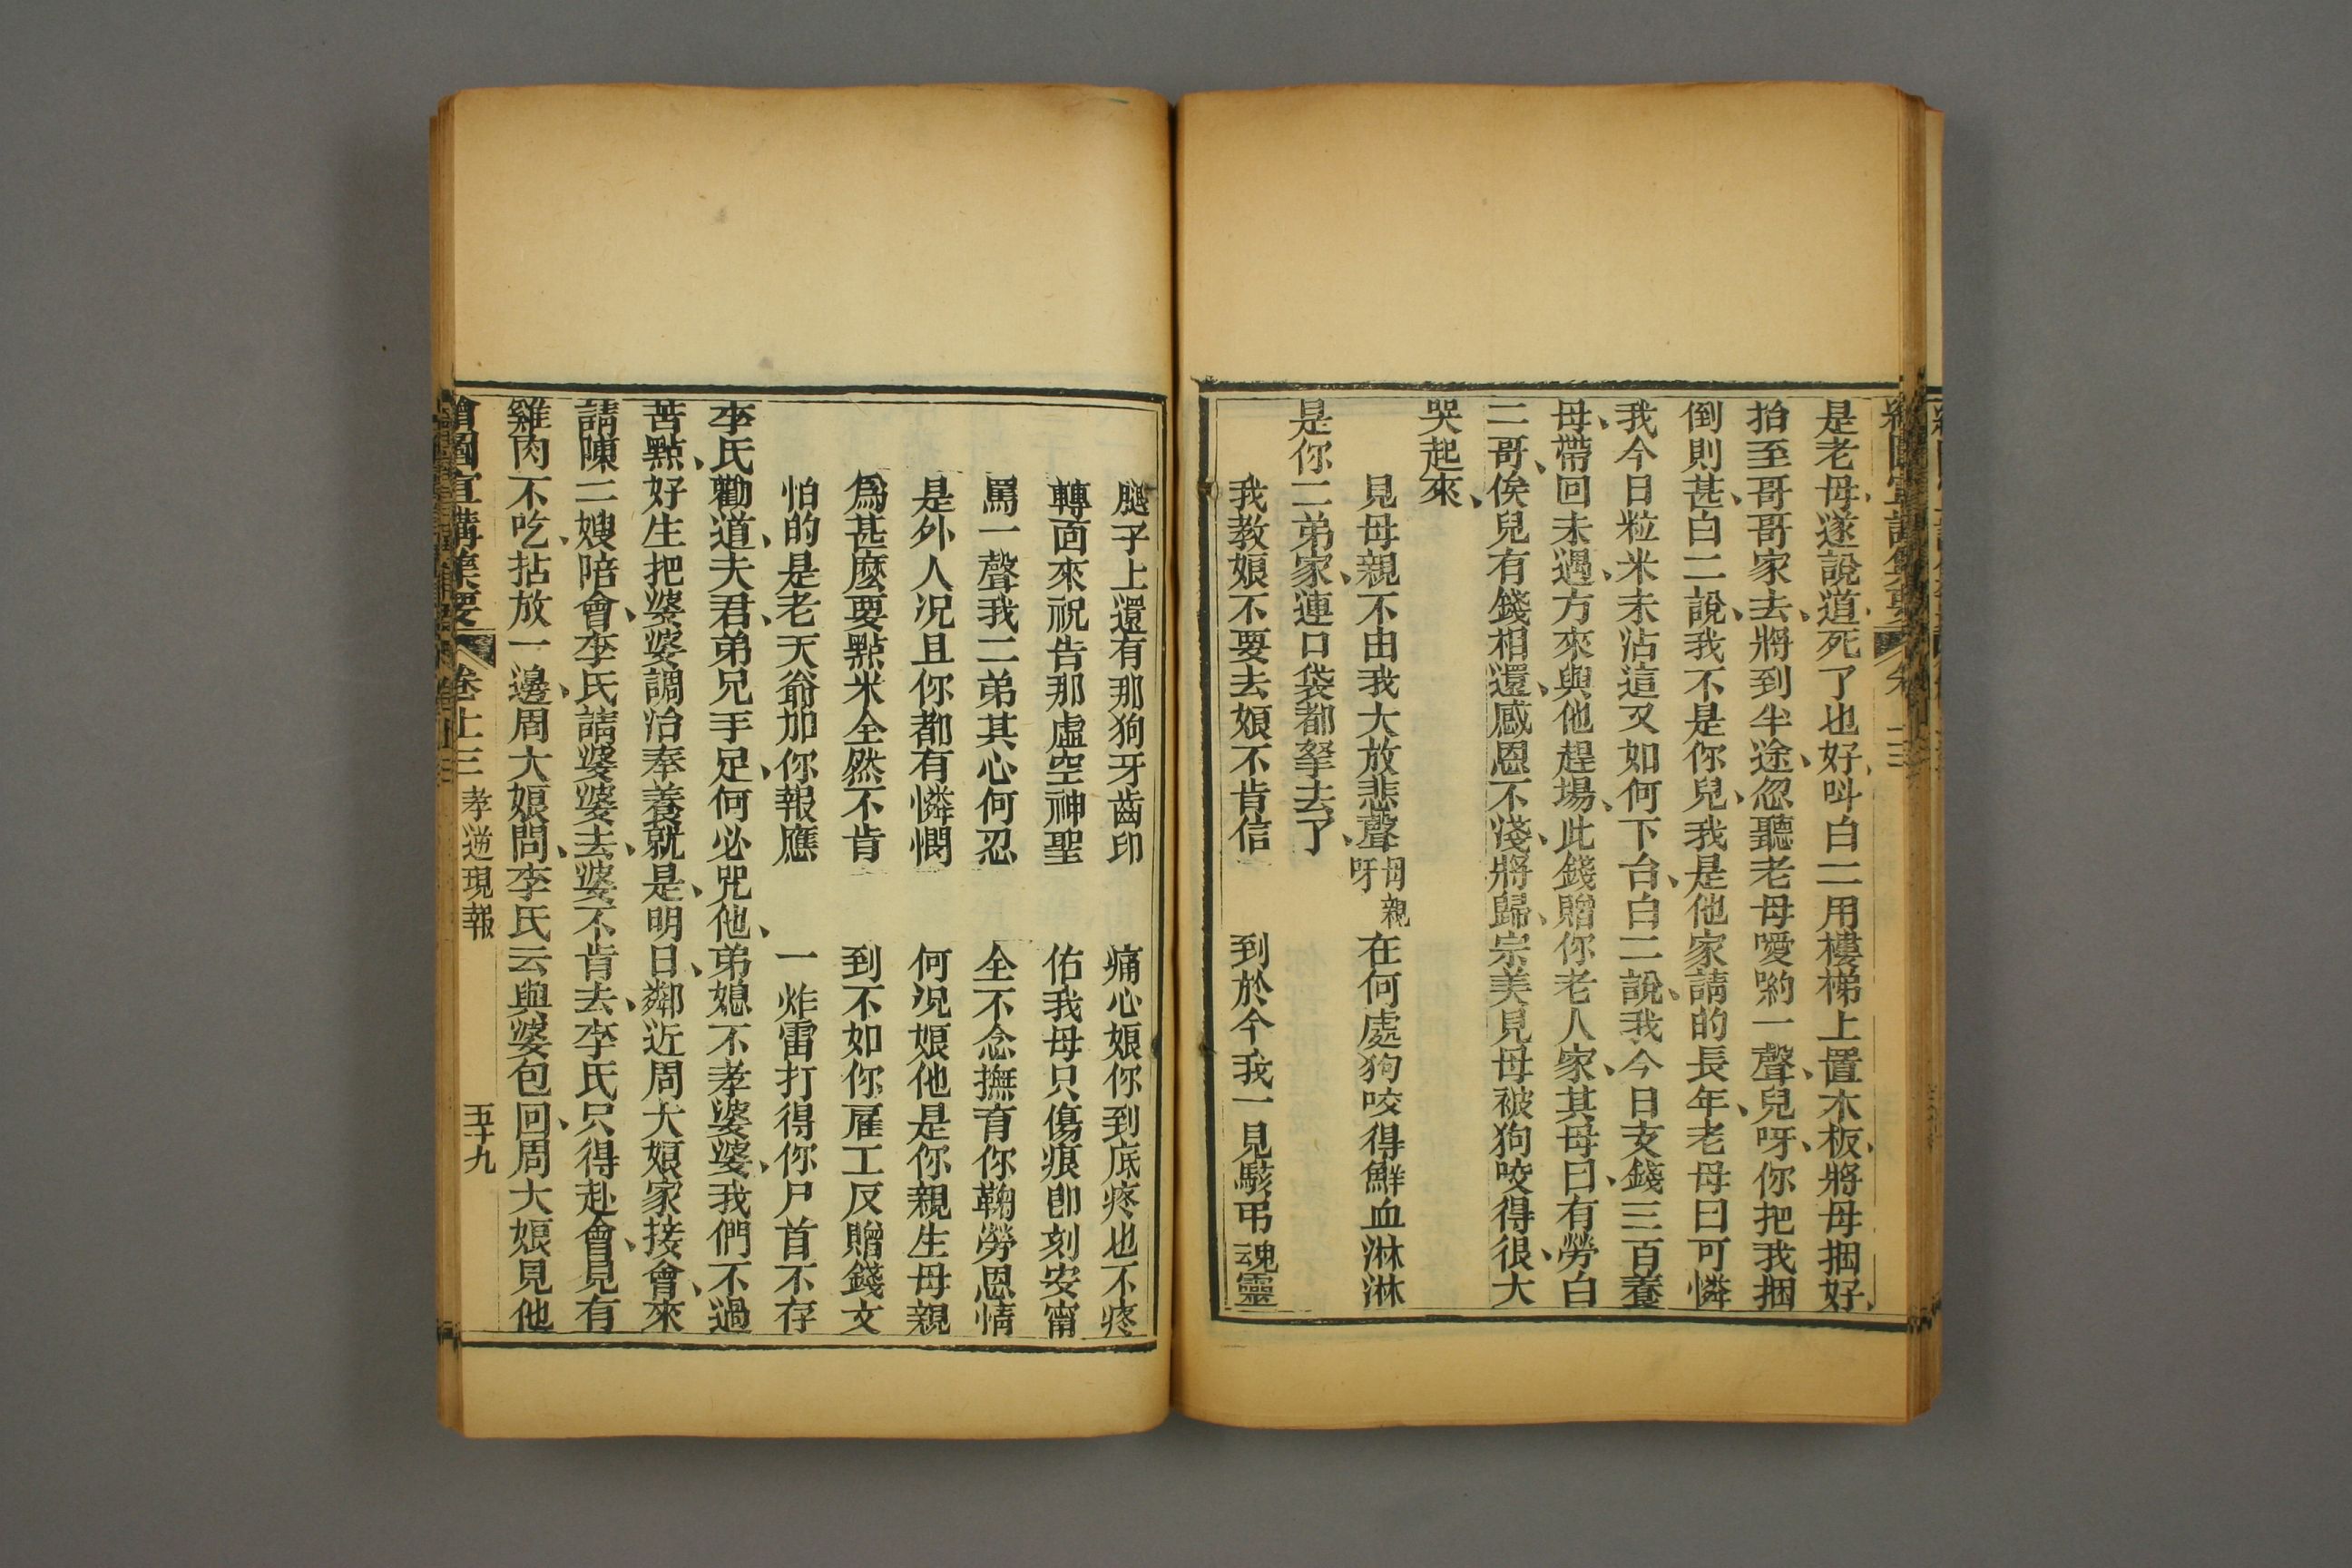 是老母、遂說道、死了也好、叫白二用樓梯上置木板、將母捆好、
抬至哥哥家去、將到半途、忽聽老母噯喲一聲、兒呀、你把我捆
倒則甚、白二說、我不是你兒、我是他家請的長年、老母曰可憐
我今日粒米未沾這又如何下台、白二說、我今日支錢三百養
母、帶回未遇、方來與他趕場、此錢贈你老人家、其母曰、有勞白
二哥、俟兒有錢相還、感恩不淺、將歸、宗美見母被狗咬得很、大
哭起來、
見母親不由我大放悲聲母親呀 在何處狗咬得鮮血淋淋
是你二弟家、連口袋都拏去了、
我教娘不要去娘不肯信 到於今我一見駭弔魂靈
腿子上還有那狗牙齒印 痛心娘你到底疼也不疼
轉面來祝告那虛空神聖 佑我母只傷痕卽刻安甯
罵一聲我二弟其心何忍 全不念撫育你鞠勞恩情
是外人况且你都有憐憫 何况娘他是你親生母親
爲甚麽要點米全然不肯 到不如你雇工反贈錢文
怕的是老天爺加你報應 一炸雷打得你尸首不存
李氏勸道、夫君、弟兄手足、何必咒他、弟媳不孝婆婆、我們不過
苦點、好生把婆婆調治奉養就是、明日、鄰近周大娘家接會、來
請陳二嫂陪會、李氏請婆婆去、婆不肯去、李氏只得赴會、見有
雞肉不吃、拈放一邊、周大娘問、李氏云與婆包回、周大娘見他
繪圖宣講集要 卷上三 孝逆現報 五十九